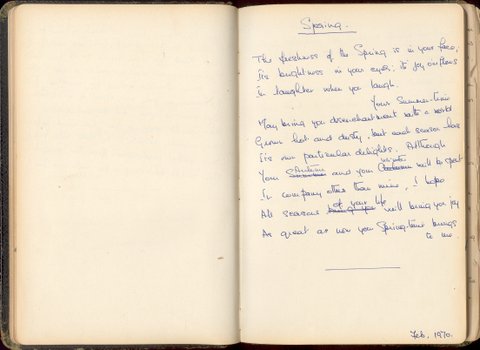 Spring.
The freshness of the Spring is in your face,
Its brightness in your eyes; its joy
In laughter when you laugh.
Your Summer-time
May bring you disenchantment with a world
Grown hot and dusty, but each season has
Its own particular delights. Although
Your Autumn and your winter will be spent
In company other than mine, I hope
All seasons of your life will bring you joy
As great as now your Spring-time brings
to me.
Feb. 1970.